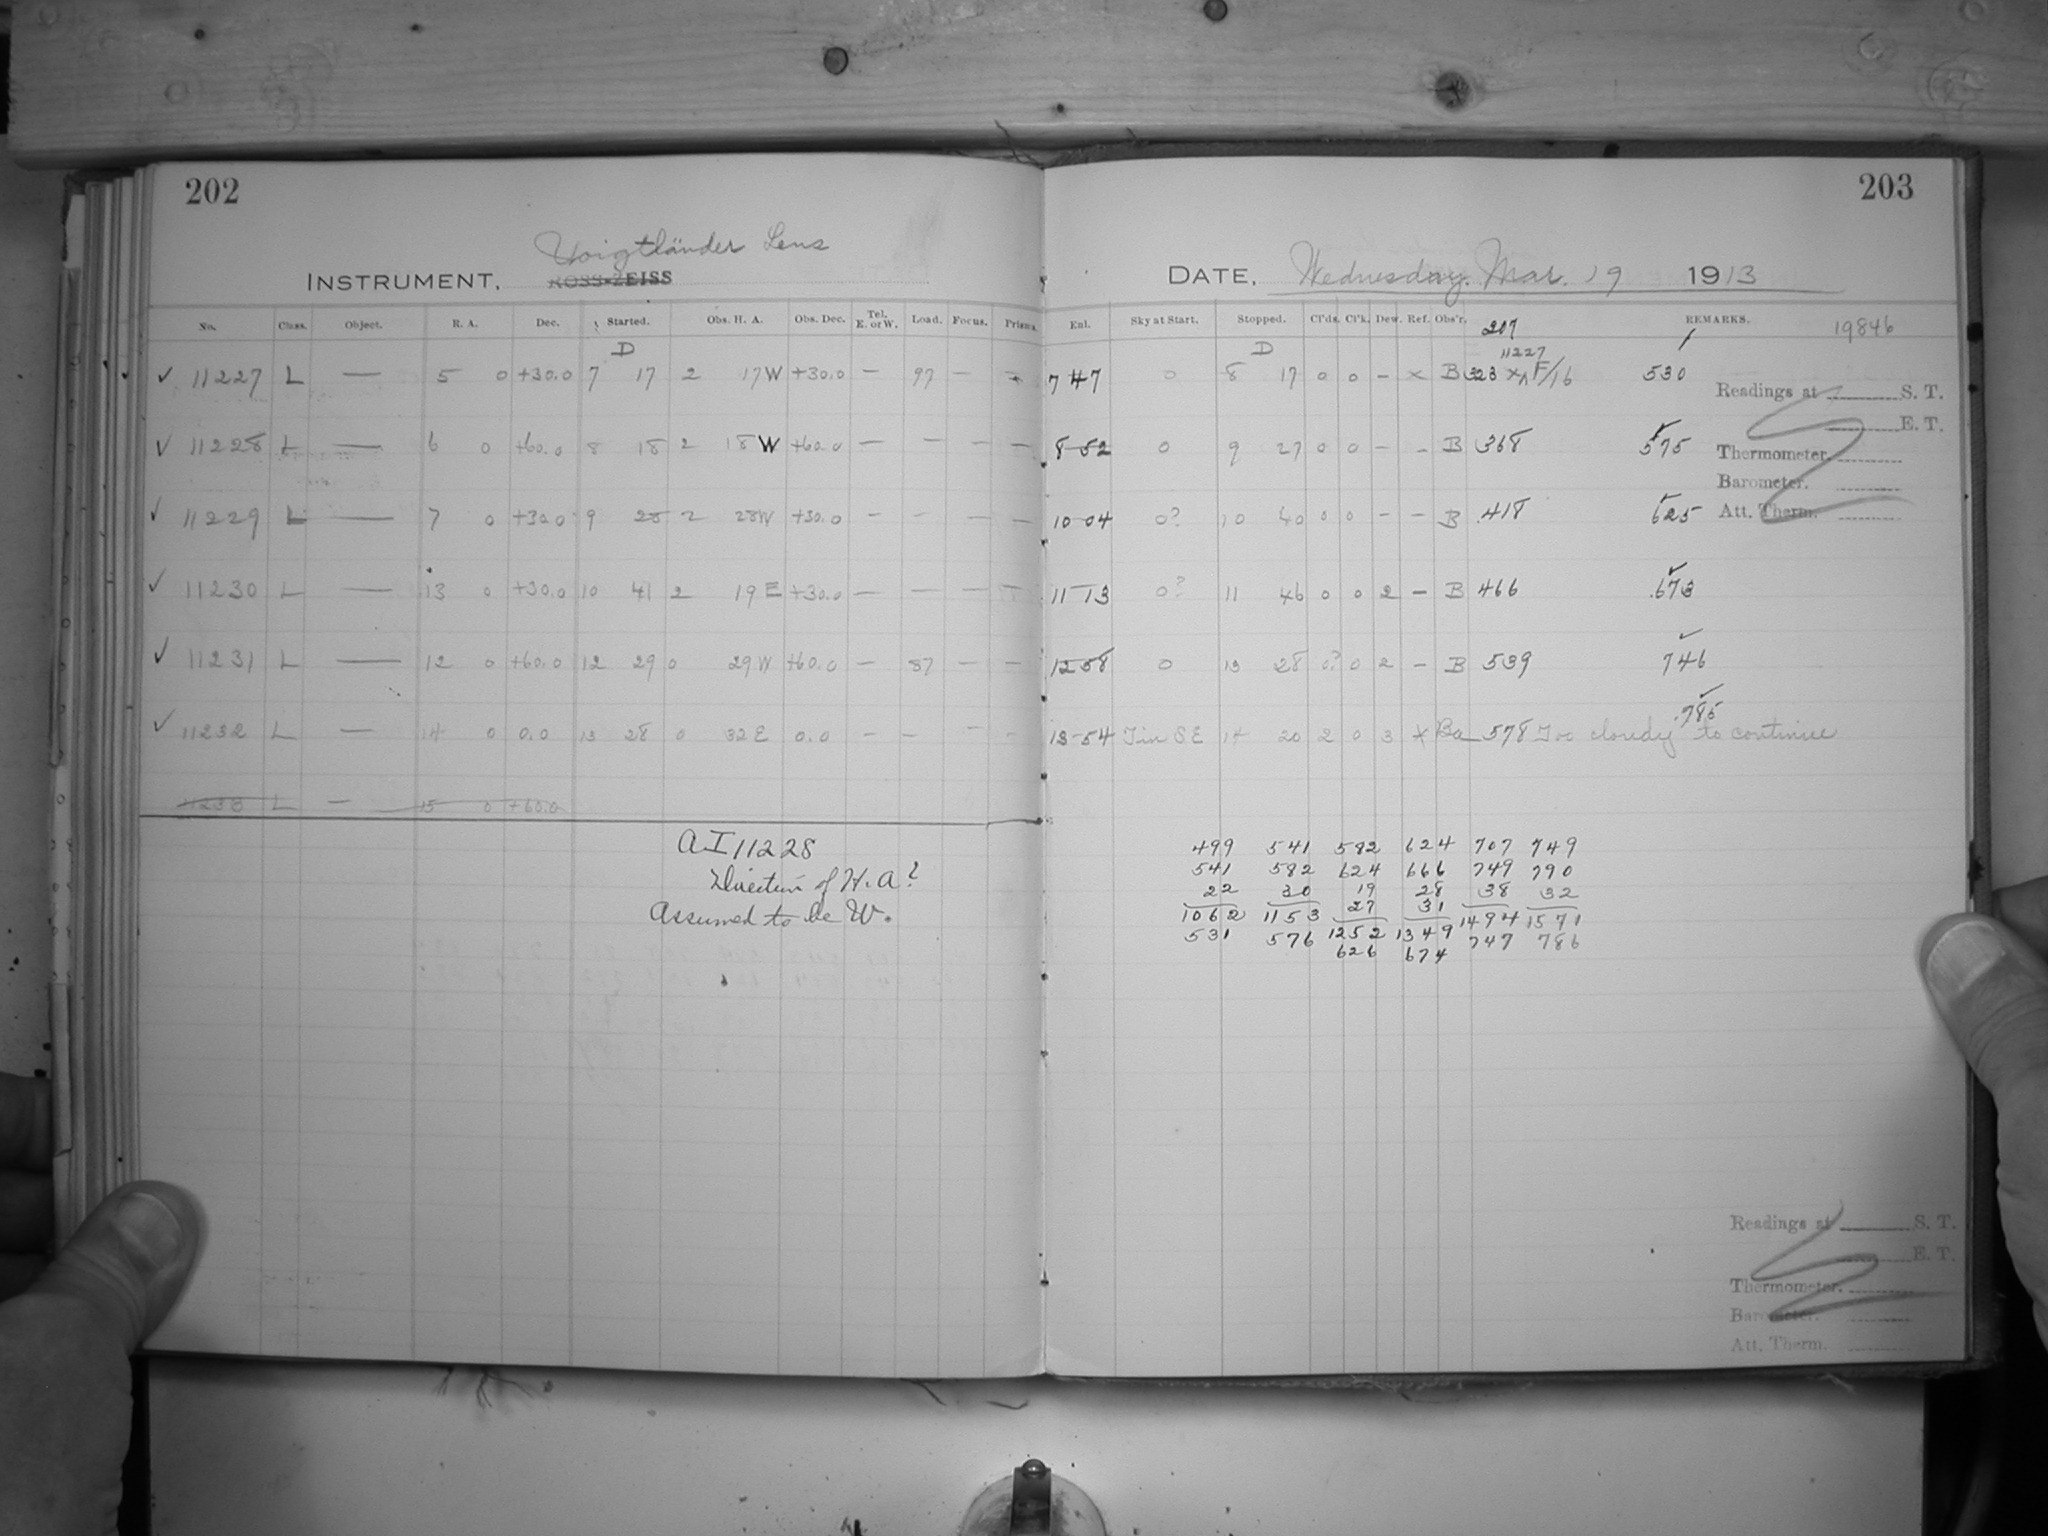 202
Voigtländer Lens
INSTRUMENT, ROSS-ZEISS
No. Class. Object. R. A. Dec. Started. Obs. H. A. Obs. Dec. Tel. E. or W. Load. Focus. Prisms.
D
✓ 11227 L — 5 0 +30.0 7 17 2 17W +30.0 — 97 — —
✓ 11228 L — 6 0 +60.0 8 18 2 18W +60.0 — — — —
✓ 11229 L — 7 0 +30.0 9 28 2 28W +30.0 — — — —
✓ 11230 L — 13 0 +30.0 10 41 2 19E +30.0 — — — —
✓ 11231 L — 12 0 +60.0 12 29 0 29W +60.0 — 87 — —
✓ 11232 L — 14 0 0.0 13 28 0 32E 0.0 — — — —
11233 L — 15 0 +60.0
AI 11228
Direction of H.A?
Assumed to be W.
203
DATE, Wednesday, Mar. 19 1913
Enl. Sky at Start. Stopped. Cl'ds. Cl'k. Dew. Ref. Obs'r. REMARKS. 19846
207
D 11227
7 47 0 8 17 0 0 – × B 323 F/16 530
8-52 0 9 27 0 0 – – B 368 575
10-04 0? 10 40 0 0 – – B .418 625
11-13 0? 11 46 0 0 2 – B 466 .673
12 58 0 13 28 0? 0 2 – B 539 746
.785
13-54 T in SE 14 20 2 0 3 × Ba 578 Too cloudy to continue
Readings at S. T.
E. T.
Thermometer.
Barometer.
Att. Therm.
499 541 582 624 707 749
541 582 624 666 749 790
22 30 19 28 38 32
27 31
1062 1153 1252 1349 1494 1571
531 576 626 674 747 786
Readings at S. T.
E. T.
Thermometer.
Barometer.
Att. Therm.